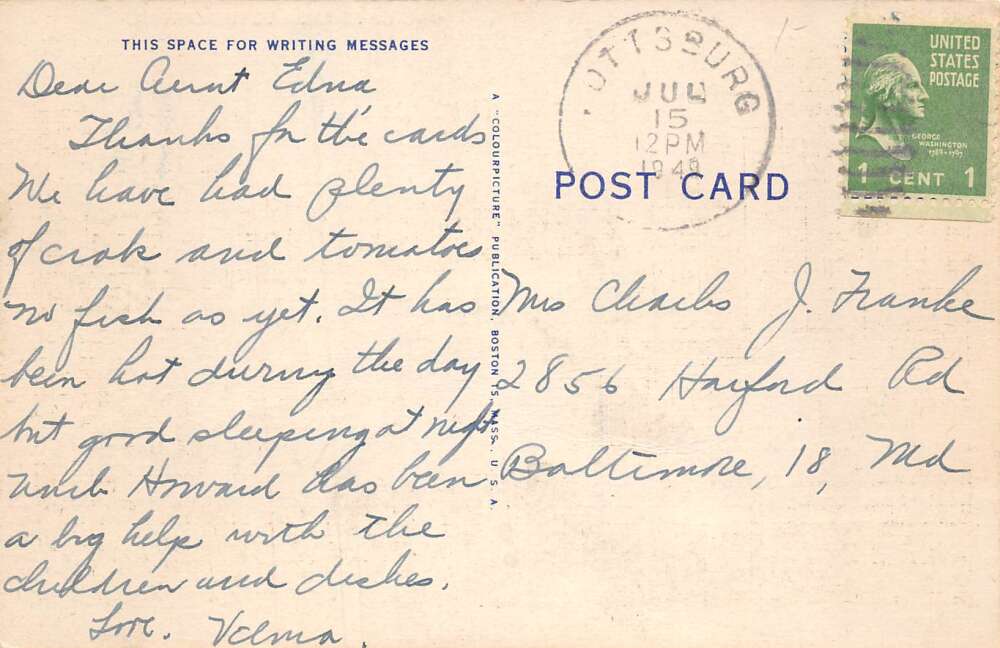 THIS SPACE FOR WRITING MESSAGES
Dear Aunt Edna
Thanks for the cards
We have had plenty
of crak and tomatoes
no fish as yet. It has
been hot during the day
but good sleeping at night
Uncle Howard has been
a big help with the
children and dishes.
Love. Velma.
A "COLOURPICTURE" PUBLICATION, BOSTON 15, MASS. U.S.A.
OTTSBURG
JUL
15
12 PM
194
UNITED
STATES
POSTAGE
GEORGE
WASHINGTON
1789-1797
1 CENT 1
POST CARD
Mrs Charles J. Franke
2856 Harford Rd
Baltimore, 18, Md